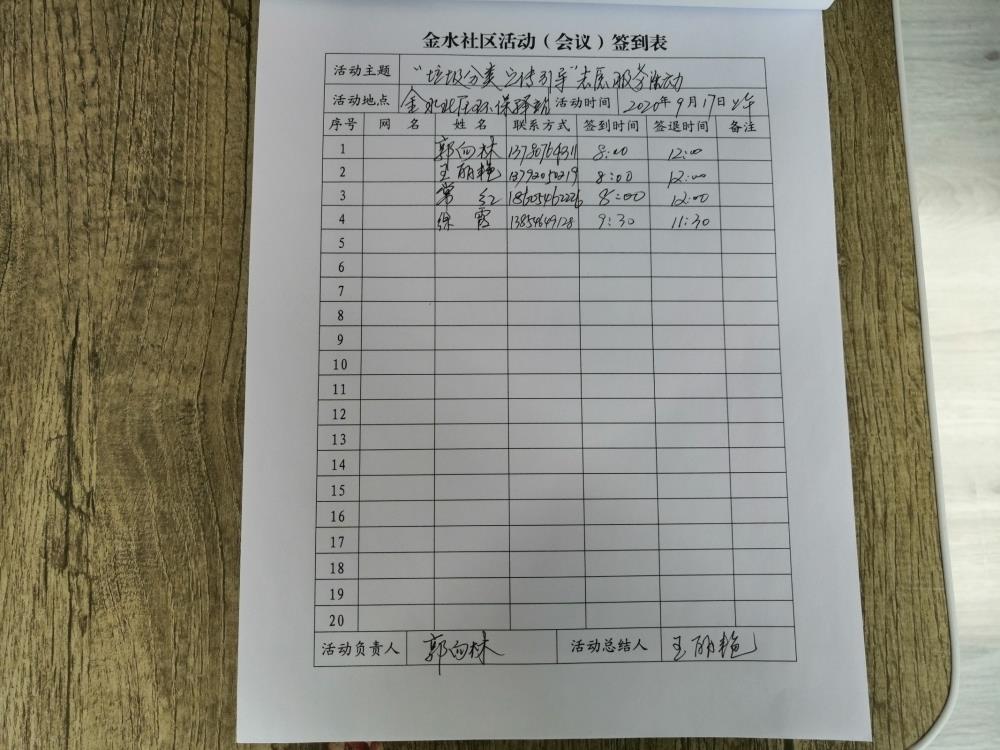 金水社区活动（会议）签到表
活动主题 “垃圾分类宣传引导”志愿服务活动
活动地点 金水社区环保驿站 活动时间 2020年9月17日上午
序号 网名 姓名 联系方式 签到时间 签退时间 备注
1 郭向林 13780754311 8:00 12:00
2 王丽艳 13792050219 8:00 12:00
3 常红 18605462226 8:00 12:00
4 徐霞 13854649128 9:30 11:30
5
6
7
8
9
10
11
12
13
14
15
16
17
18
19
20
活动负责人 郭向林 活动总结人 王丽艳